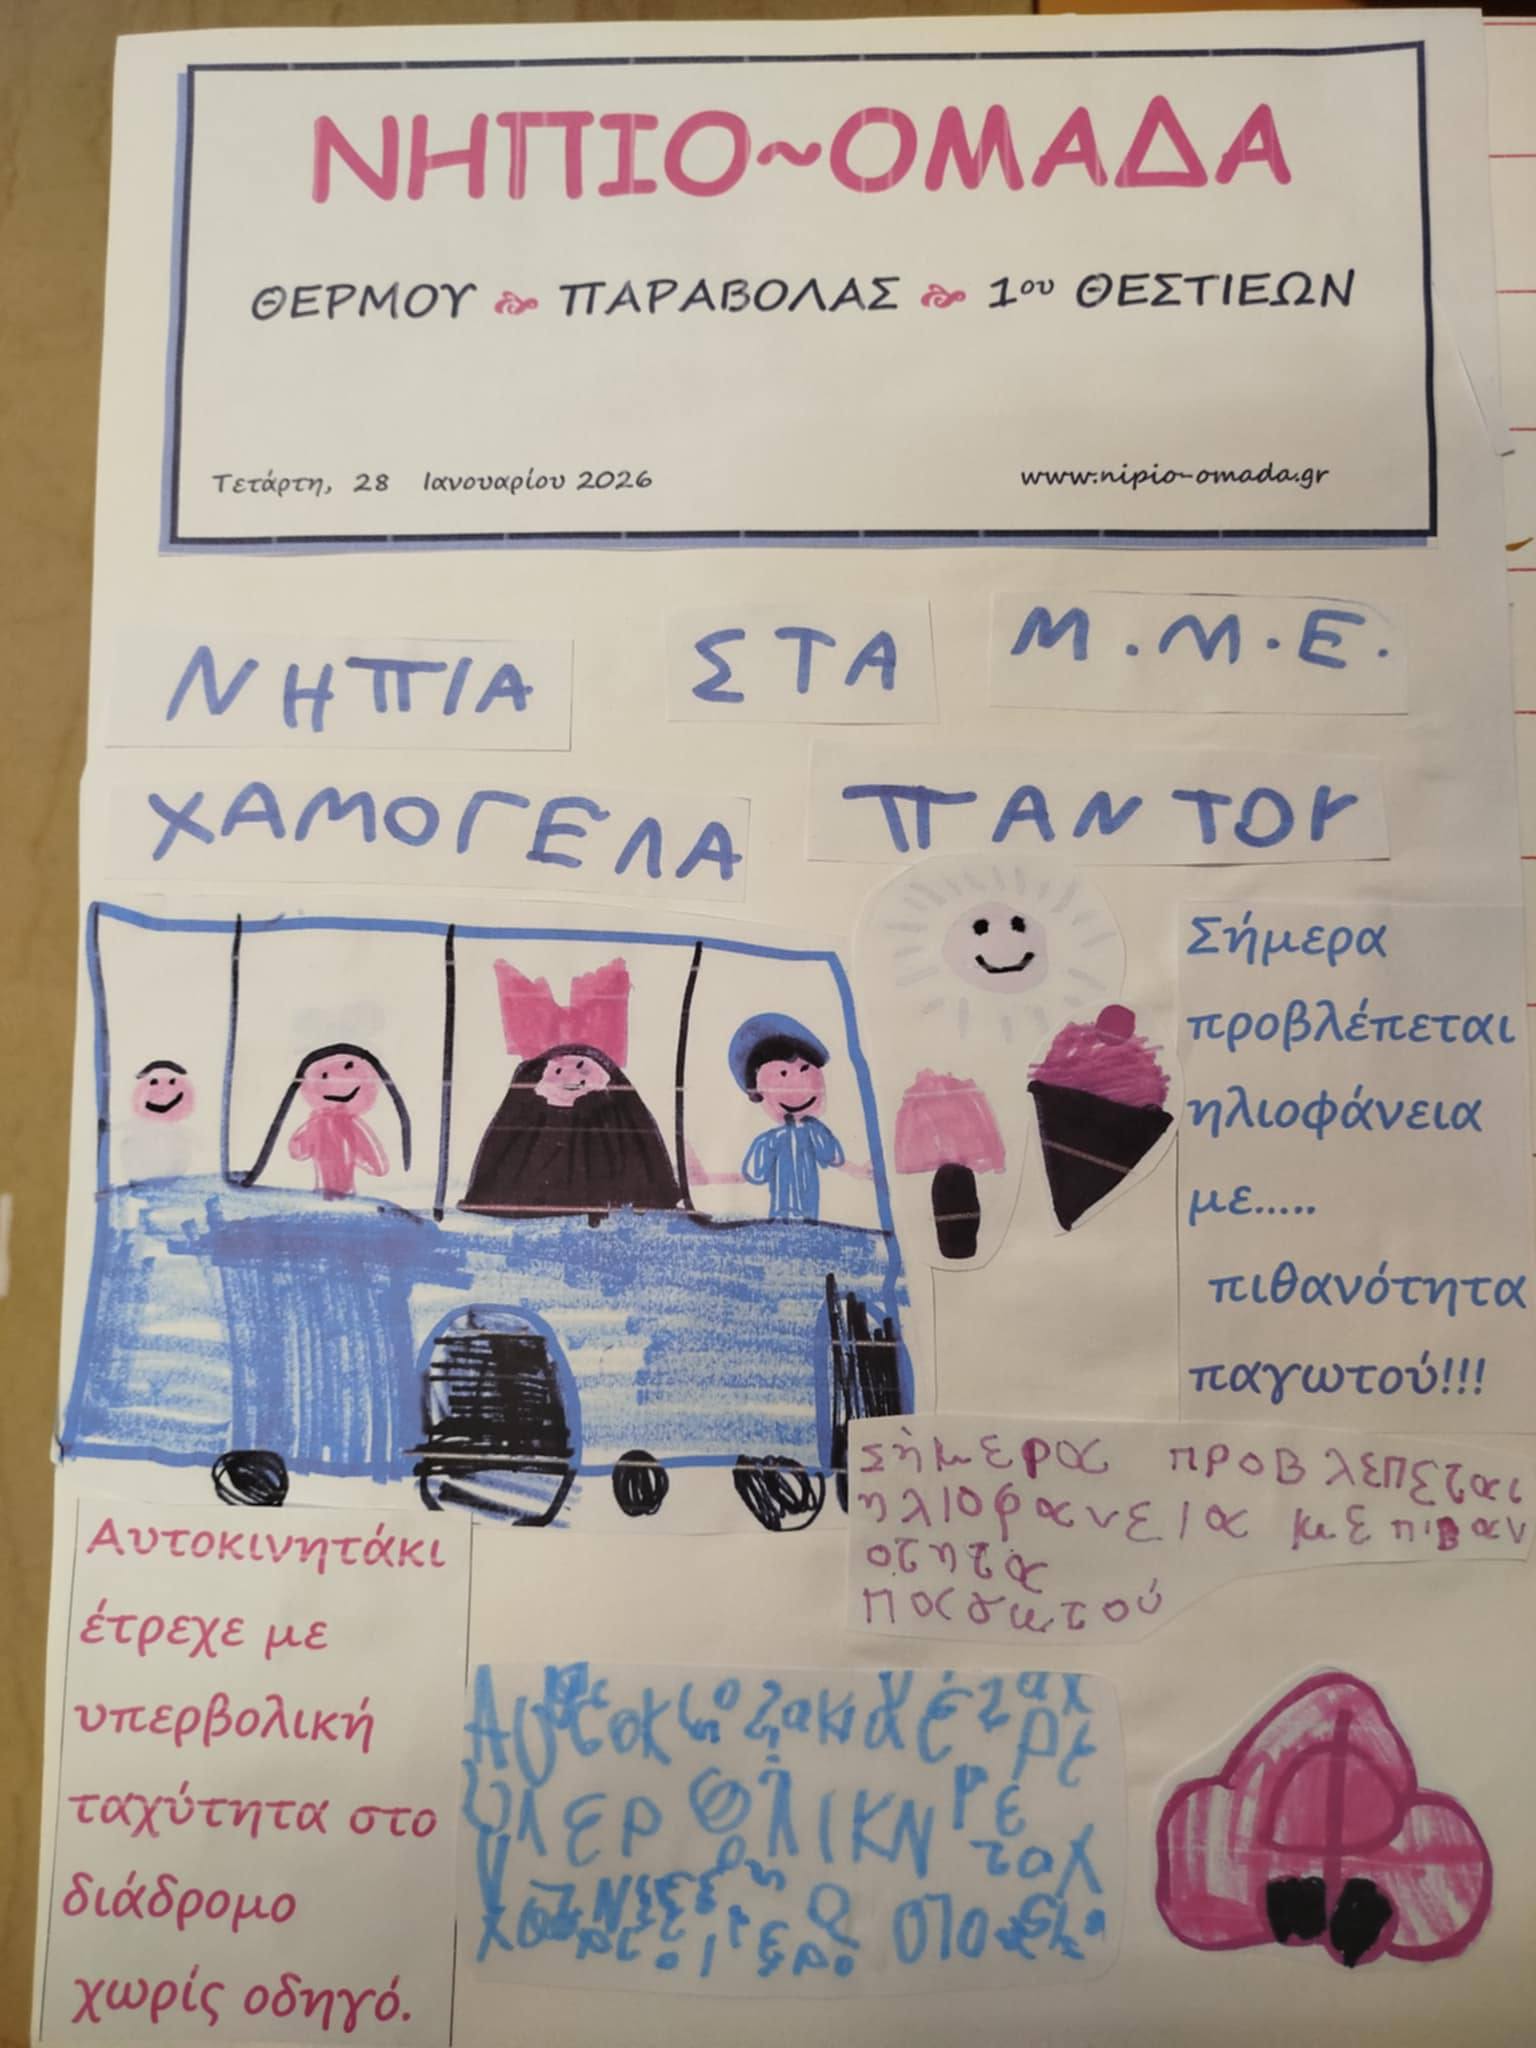 ΝΗΠΙΟ~ΟΜΑΔΑ
ΘΕΡΜΟΥ ΠΑΡΑΒΟΛΑΣ 1ου ΘΕΣΤΙΕΩΝ
Τετάρτη, 28 Ιανουαρίου 2026 www.nipio-omada.gr
ΝΗΠΙΑ ΣΤΑ Μ.Μ.Ε.
ΧΑΜΟΓΕΛΑ ΠΑΝΤΟΥ
Σήμερα
προβλέπεται
ηλιοφάνεια
με.....
πιθανότητα
παγωτού!!!
Σήμερα προβλεπεται
ηλιοφανεια με πιθαν
οτητα
παγωτού
Αυτοκινητάκι
έτρεχε με
υπερβολική
ταχύτητα στο
διάδρομο
χωρίς οδηγό.